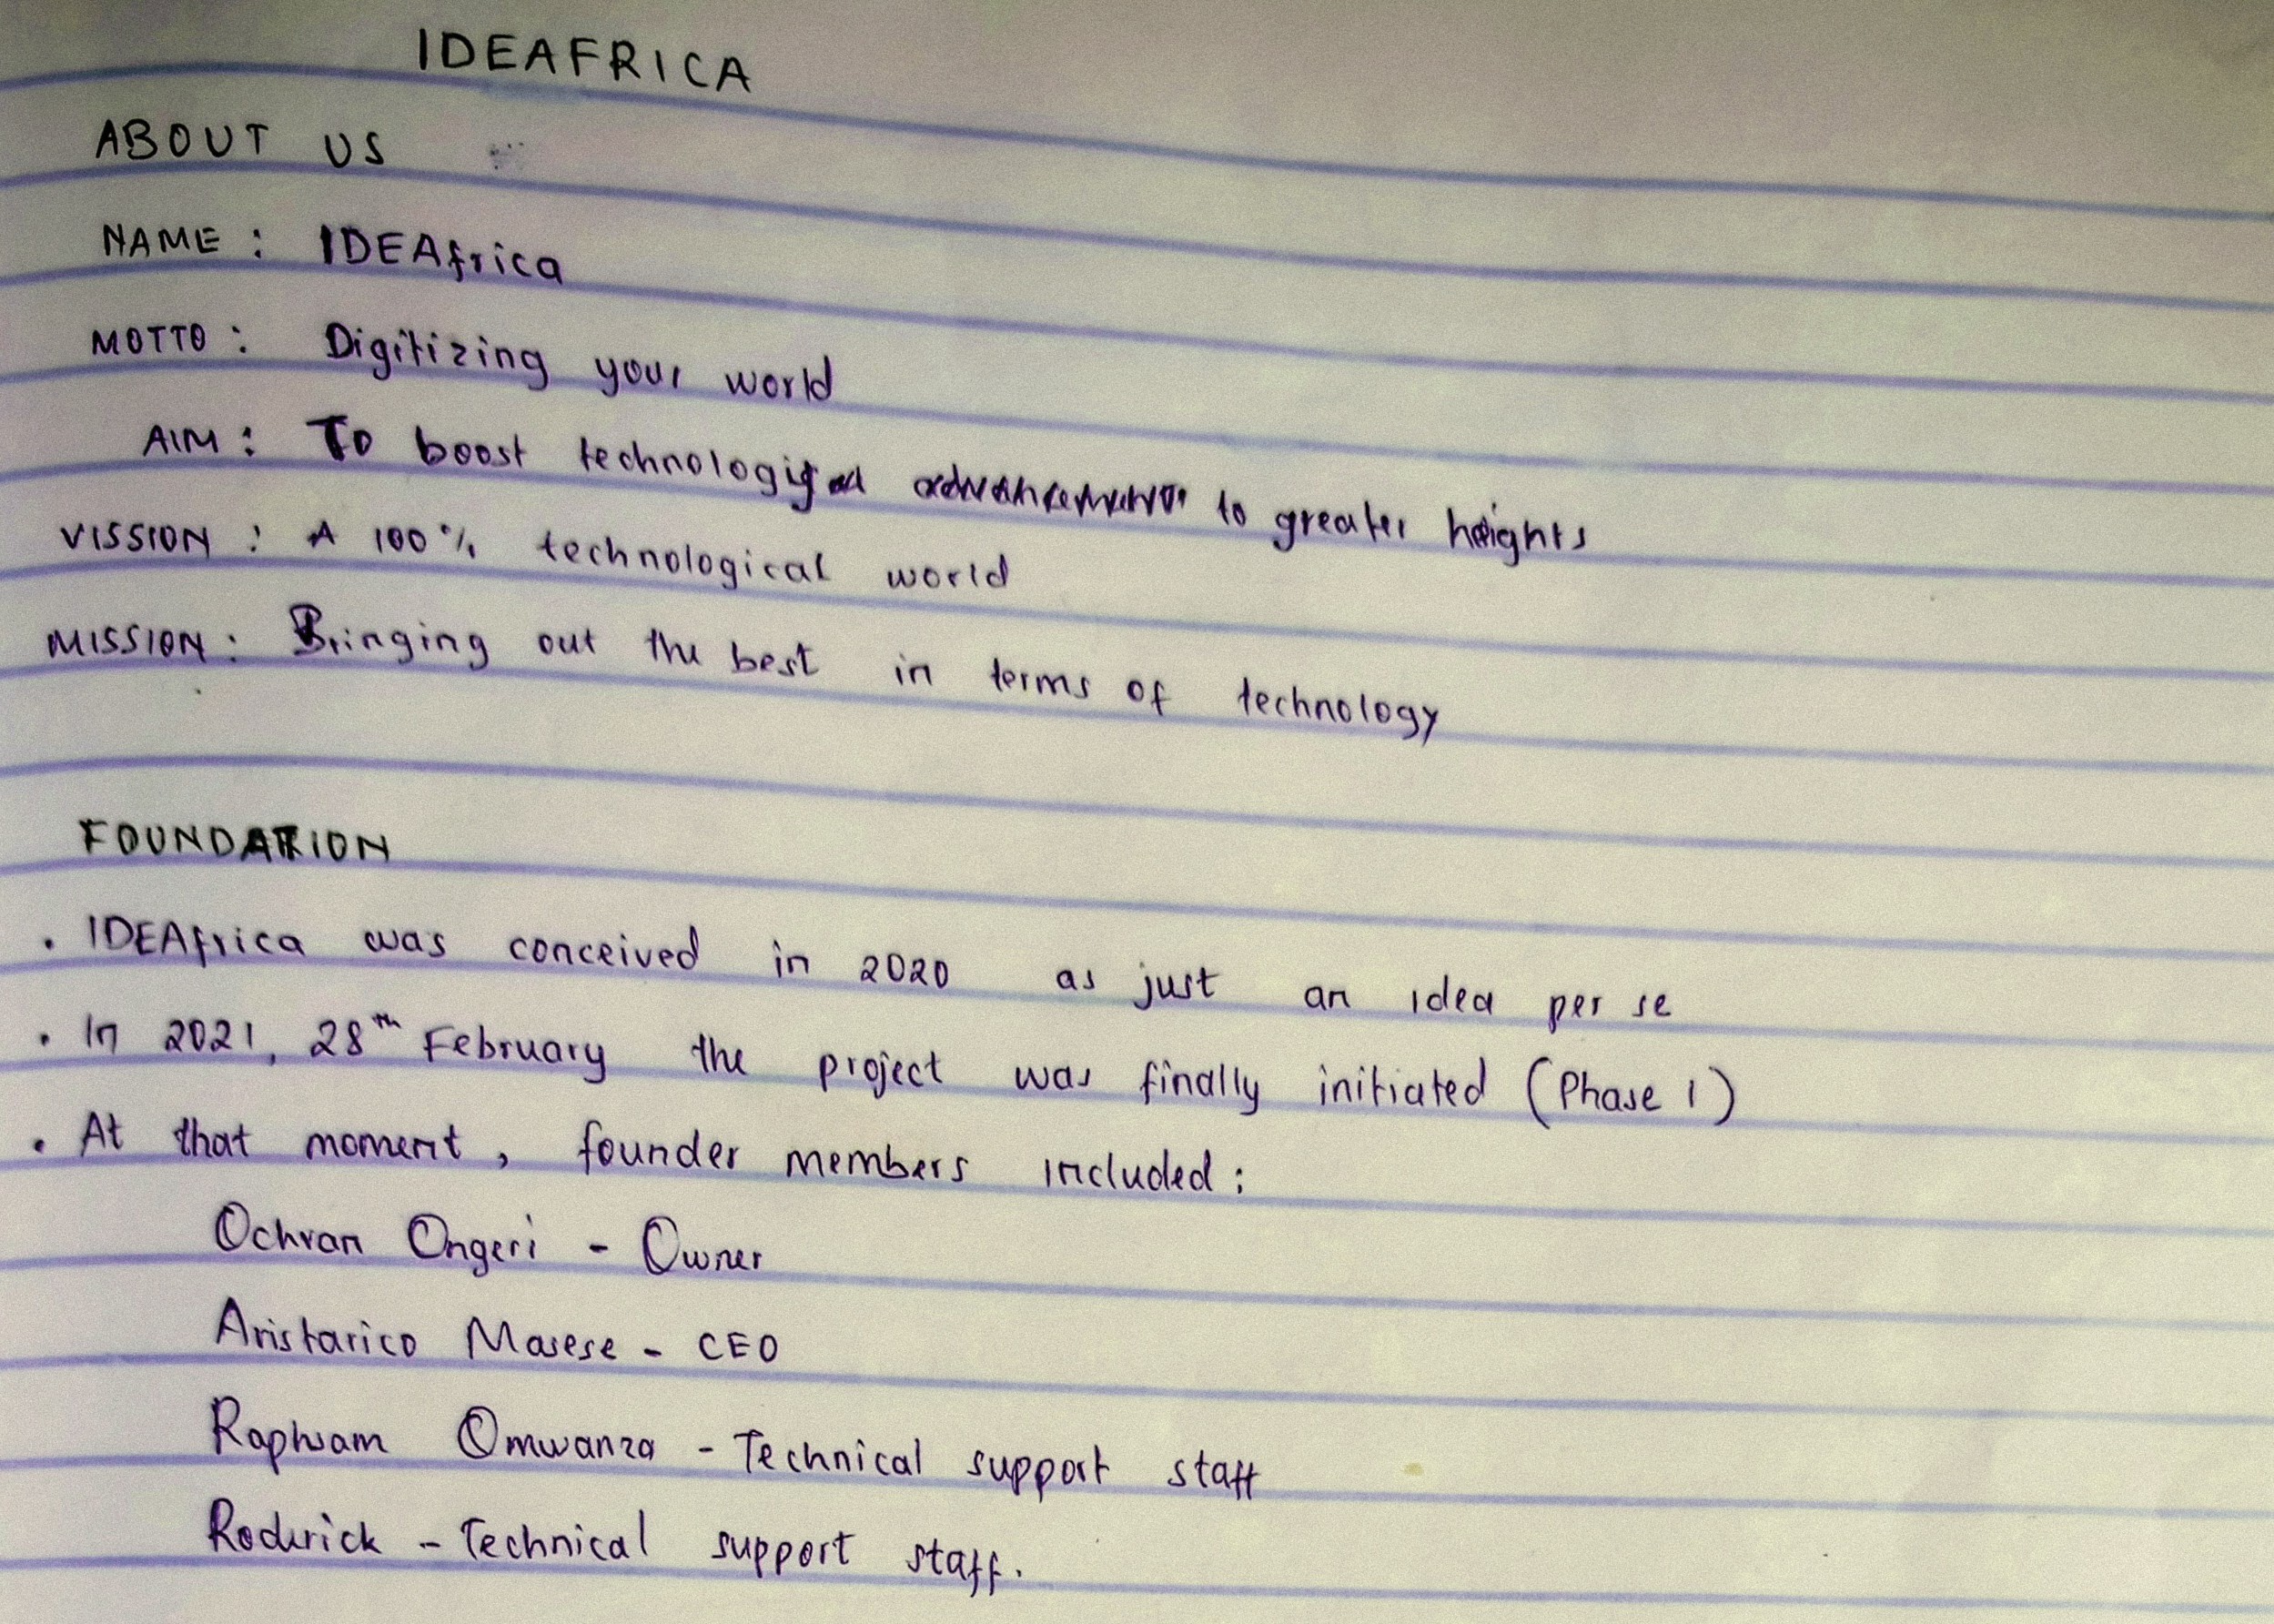 IDEAFRICA
ABOUT US
NAME : IDEAfrica
MOTTO : Digitizing your world
AIM : To boost technological advancement to greater heights
VISSION : A 100% technological world
MISSION : Bringing out the best in terms of technology
FOUNDATION
. IDEAfrica was conceived in 2020 as just an idea per se
. In 2021, 28th February the project was finally initiated (Phase 1)
. At that moment, founder members included :
Ochran Ongeri - Owner
Aristarico Masese - CEO
Omwanza - Technical support staff
Roderick - Technical support staff.